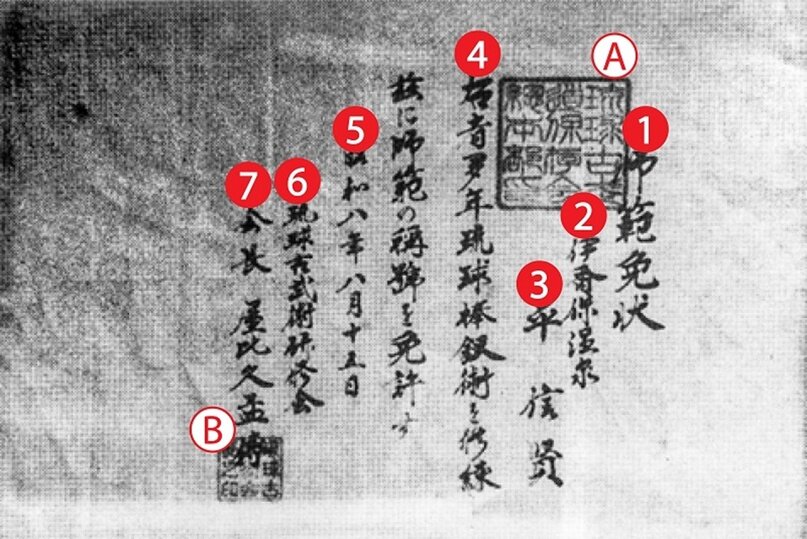 A
琉球古武
道保存会
総本部印
1 師範免状
2 伊香保温泉
3 平 信賢
4 右者多年琉球棒釵術を修練
茲に師範の稱號を免許す
5 昭和八年八月十五日
6 琉球古武術研修会
7 会長 屋比久孟傳
B